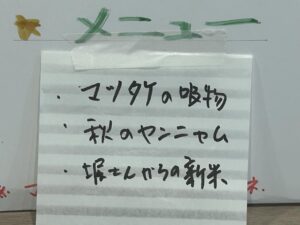 メニュー
・マツタケの吸物
・秋のヤンニャム
・堀さんからの新米